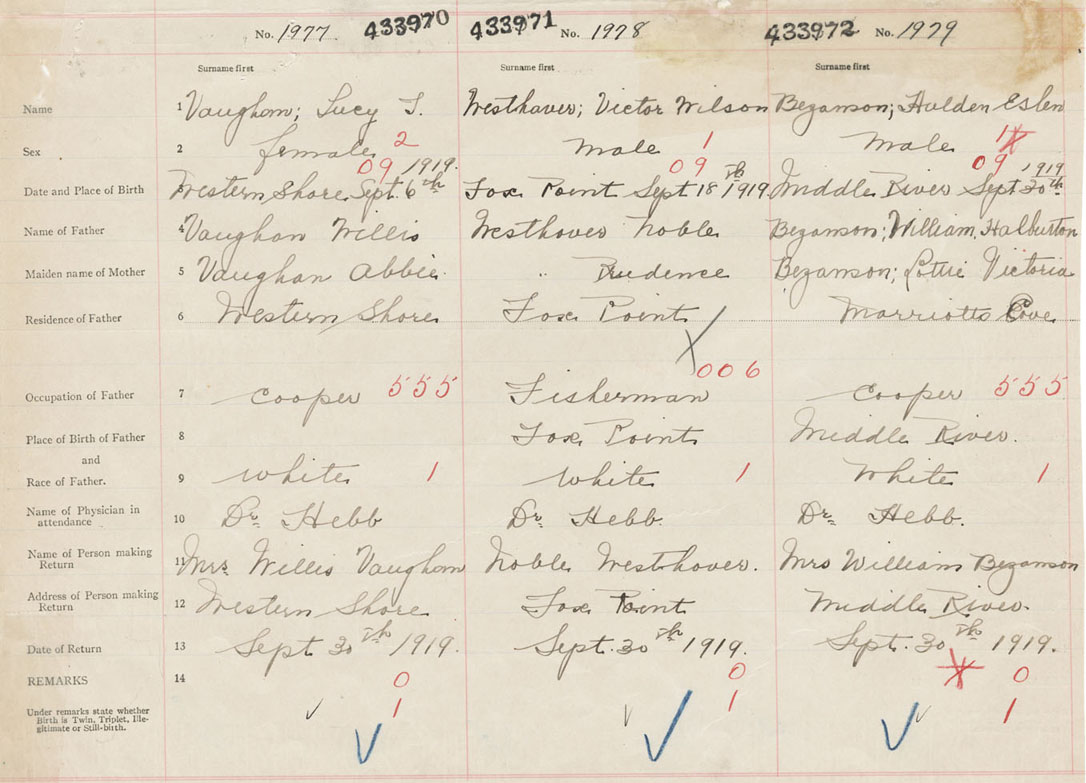 No. 1977. 433970 433971 No. 1978 433972 No. 1979
Surname first Surname first Surname first
Name 1 Vaughan; Lucy T. Westhaver; Victor Wilson Bezanson; Halden Eslen
Sex 2 female 2 male 1 male 1
09 1919. 09 09 1919
Date and Place of Birth 3 Western Shore Sept. 6th Fox Point Sept 18th 1919 Middle River Sept 30th
Name of Father 4 Vaughan Willis Westhaver Noble Bezanson; William Halburton
Maiden name of Mother 5 Vaughan Abbie " Prudence Bezanson; Lottie Victoria
Residence of Father 6 Western Shore Fox Point Marriotts Cove
006
Occupation of Father 7 cooper 555 Fisherman cooper 555
Place of Birth of Father 8 Fox Point Middle River.
and
Race of Father. 9 white 1 white 1 White 1
Name of Physician in attendance 10 Dr. Hebb Dr. Hebb. Dr. Hebb.
Name of Person making Return 11 Mrs. Willis Vaughan Noble Westhaver. Mrs William Bezanson
Address of Person making Return 12 Western Shore Fox Point Middle River.
Date of Return 13 Sept 30th 1919. Sept. 30th 1919. Sept. 30th 1919.
REMARKS 14 0 0 0
Under remarks state whether 1 1 1
Birth is Twin, Triplet, Ille-
gitimate or Still-birth.